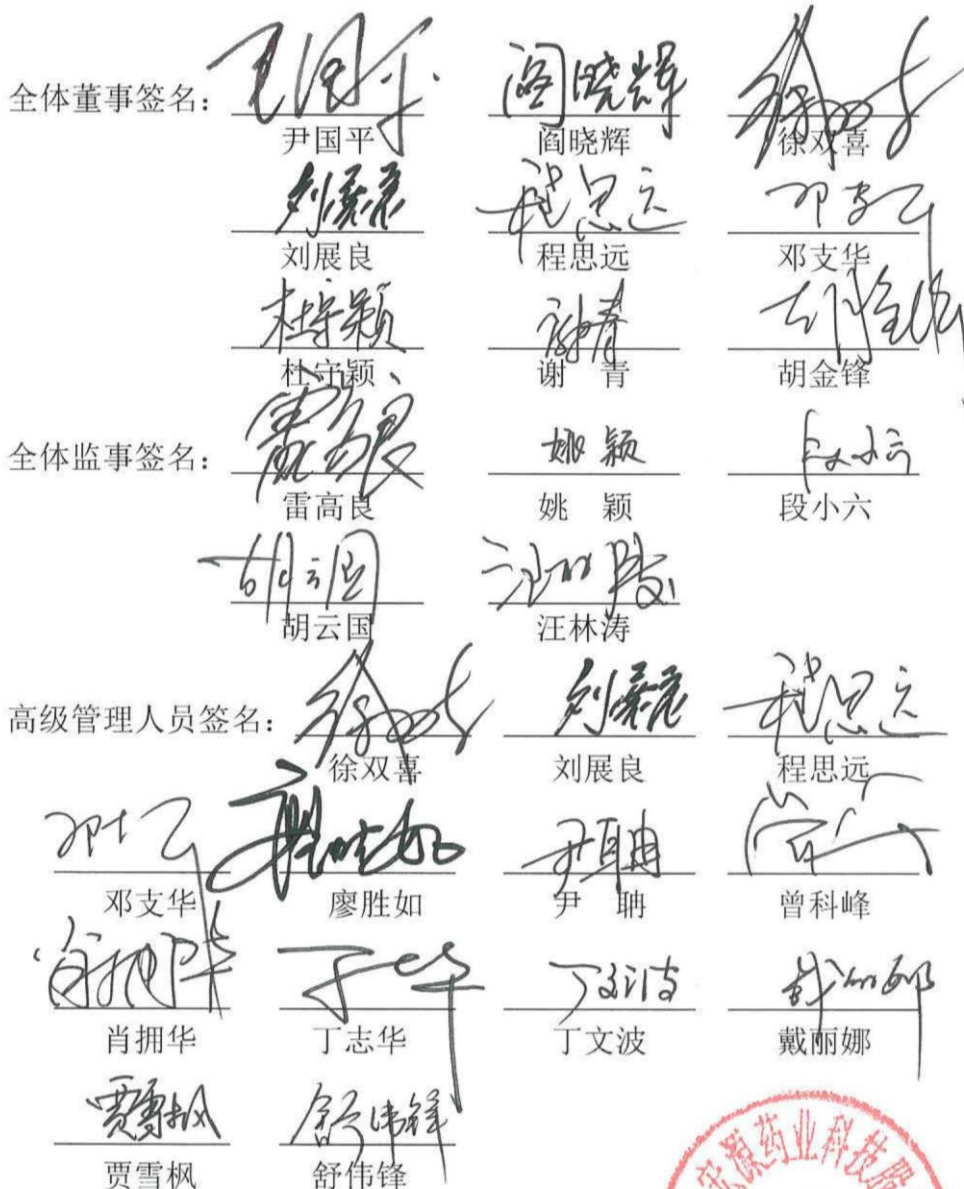 全体董事签名：
尹国平 阎晓辉 徐双喜
刘展良 程思远 邓支华
杜守颖 谢 青 胡金锋
全体监事签名：
雷高良 姚 颖 段小六
胡云国 汪林涛
高级管理人员签名：
徐双喜 刘展良 程思远
邓支华 廖胜如 尹 聃 曾科峰
肖拥华 丁志华 丁文波 戴丽娜
贾雪枫 舒伟锋
宏源药业科技股